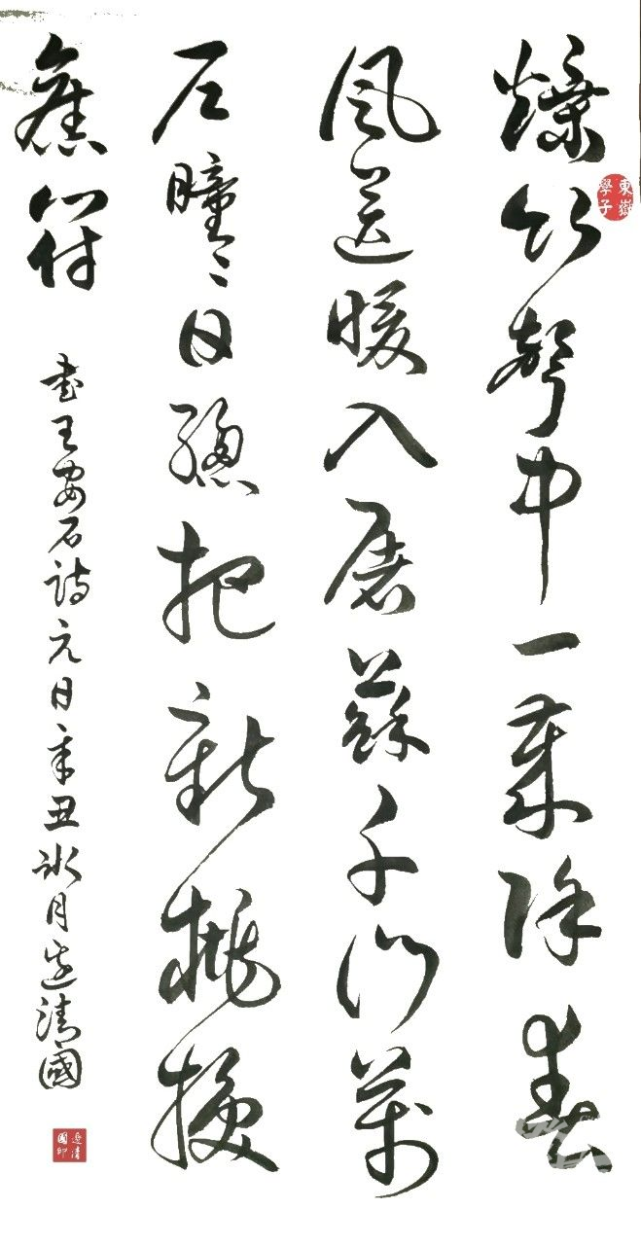 爆竹聲中一歲除春
東嶽學子
風送暖入屠蘇千門萬
戶曈〻日總把新桃換
舊符
書王安石詩元日辛丑冰月逯清國
逯清國印